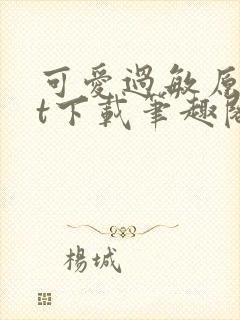 可愛過敏原
t下載筆趣閣
楊城